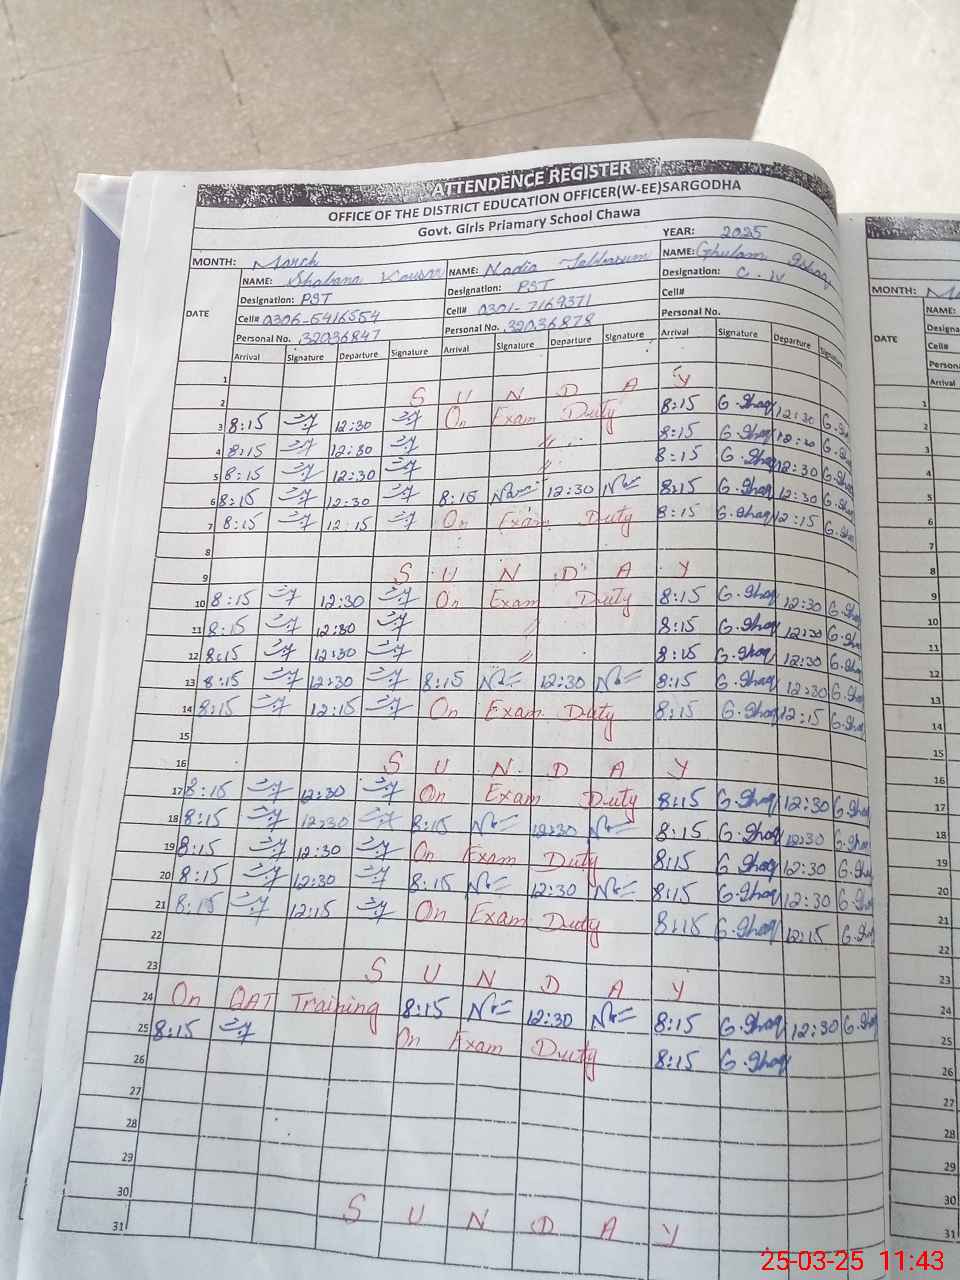 ATTENDENCE REGISTER
OFFICE OF THE DISTRICT EDUCATION OFFICER(W-EE)SARGODHA
Govt. Girls Priamary School Chawa
MONTH: March YEAR: 2025
NAME: Shabana Kousar NAME: Nadia Tabbasum NAME: Ghulam Ishaq
Designation: PST Designation: PST Designation: C. IV
DATE Cell# 0306-6416554 Cell# 0301-7169371 Cell#
Personal No. 32036847 Personal No. 32036878 Personal No.
Arrival Signature Departure Signature Arrival Signature Departure Signature Arrival Signature Departure Signature
1
2 S U N D A Y
3 8:15 12:30 On Exam Duty 8:15 G.Ishaq 12:30 G.Ishaq
4 8:15 12:30 " 8:15 G.Ishaq 12:30 G.Ishaq
5 8:15 12:30 " 8:15 G.Ishaq 12:30 G.Ishaq
6 8:15 12:30 8:15 12:30 8:15 G.Ishaq 12:30 G.Ishaq
7 8:15 12:15 On Exam Duty 8:15 G.Ishaq 12:15 G.Ishaq
8
9 S U N D A Y
10 8:15 12:30 On Exam Duty 8:15 G.Ishaq 12:30 G.Ishaq
11 8:15 12:30 " 8:15 G.Ishaq 12:30 G.Ishaq
12 8:15 12:30 " 8:15 G.Ishaq 12:30 G.Ishaq
13 8:15 12:30 8:15 12:30 8:15 G.Ishaq 12:30 G.Ishaq
14 8:15 12:15 On Exam Duty 8:15 G.Ishaq 12:15 G.Ishaq
15
16 S U N D A Y
17 8:15 12:30 On Exam Duty 8:15 G.Ishaq 12:30 G.Ishaq
18 8:15 12:30 8:15 12:30 8:15 G.Ishaq 12:30 G.Ishaq
19 8:15 12:30 On Exam Duty 8:15 G.Ishaq 12:30 G.Ishaq
20 8:15 12:30 8:15 12:30 8:15 G.Ishaq 12:30 G.Ishaq
21 8:15 12:15 On Exam Duty 8:15 G.Ishaq 12:15 G.Ishaq
22
23 S U N D A Y
24 On QAT Training 8:15 12:30 8:15 G.Ishaq 12:30 G.Ishaq
25 8:15 On Exam Duty 8:15 G.Ishaq
26
27
28
29
30 S U N D A Y
31
MONTH: Ma
NAME:
Designa
DATE Cell#
Persona
Arrival
1
2
3
4
5
6
7
8
9
10
11
12
13
14
15
16
17
18
19
20
21
22
23
24
25
26
27
28
29
30
31
25-03-25 11:43